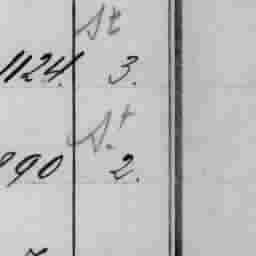 St
1124. 3.
St
890 2.